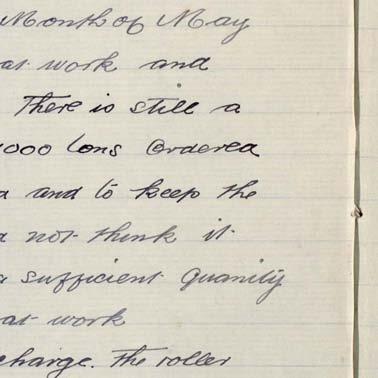 Month of May
at work and
There is still a
000 tons Ordered
and to keep the
not think it
sufficient Quanity
at work
charge. The roller